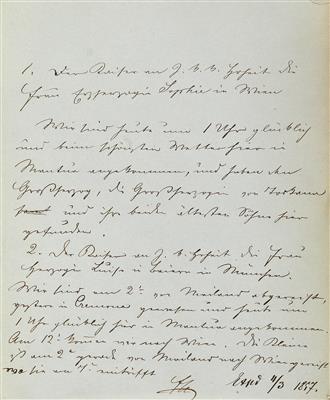 1. Der Kaiser an J. k. k. Hoheit die
Frau Erzherzogin Sophie in Wien
Wir sind heute um 1 Uhr glücklich
und beim schönsten Wetter hier in
Mantua angekommen, und haben den
Großherzog, die Großherzogin von Toskana
und ihre beiden ältesten Söhne hier
gefunden.
2. Der Kaiser an J. k. Hoheit die Frau
Herzogin Luise in Baiern in München.
Wir sind am 2. von Mailand abgereist,
gestern in Cremona gewesen und heute um
1 Uhr glücklich hier in Mantua angekommen.
Am 12. kommen wir nach Wien. Die Kleine
ist am 2. gerade von Mailand nach Wien gereist
wo sie am eintrifft
4/3 1857.